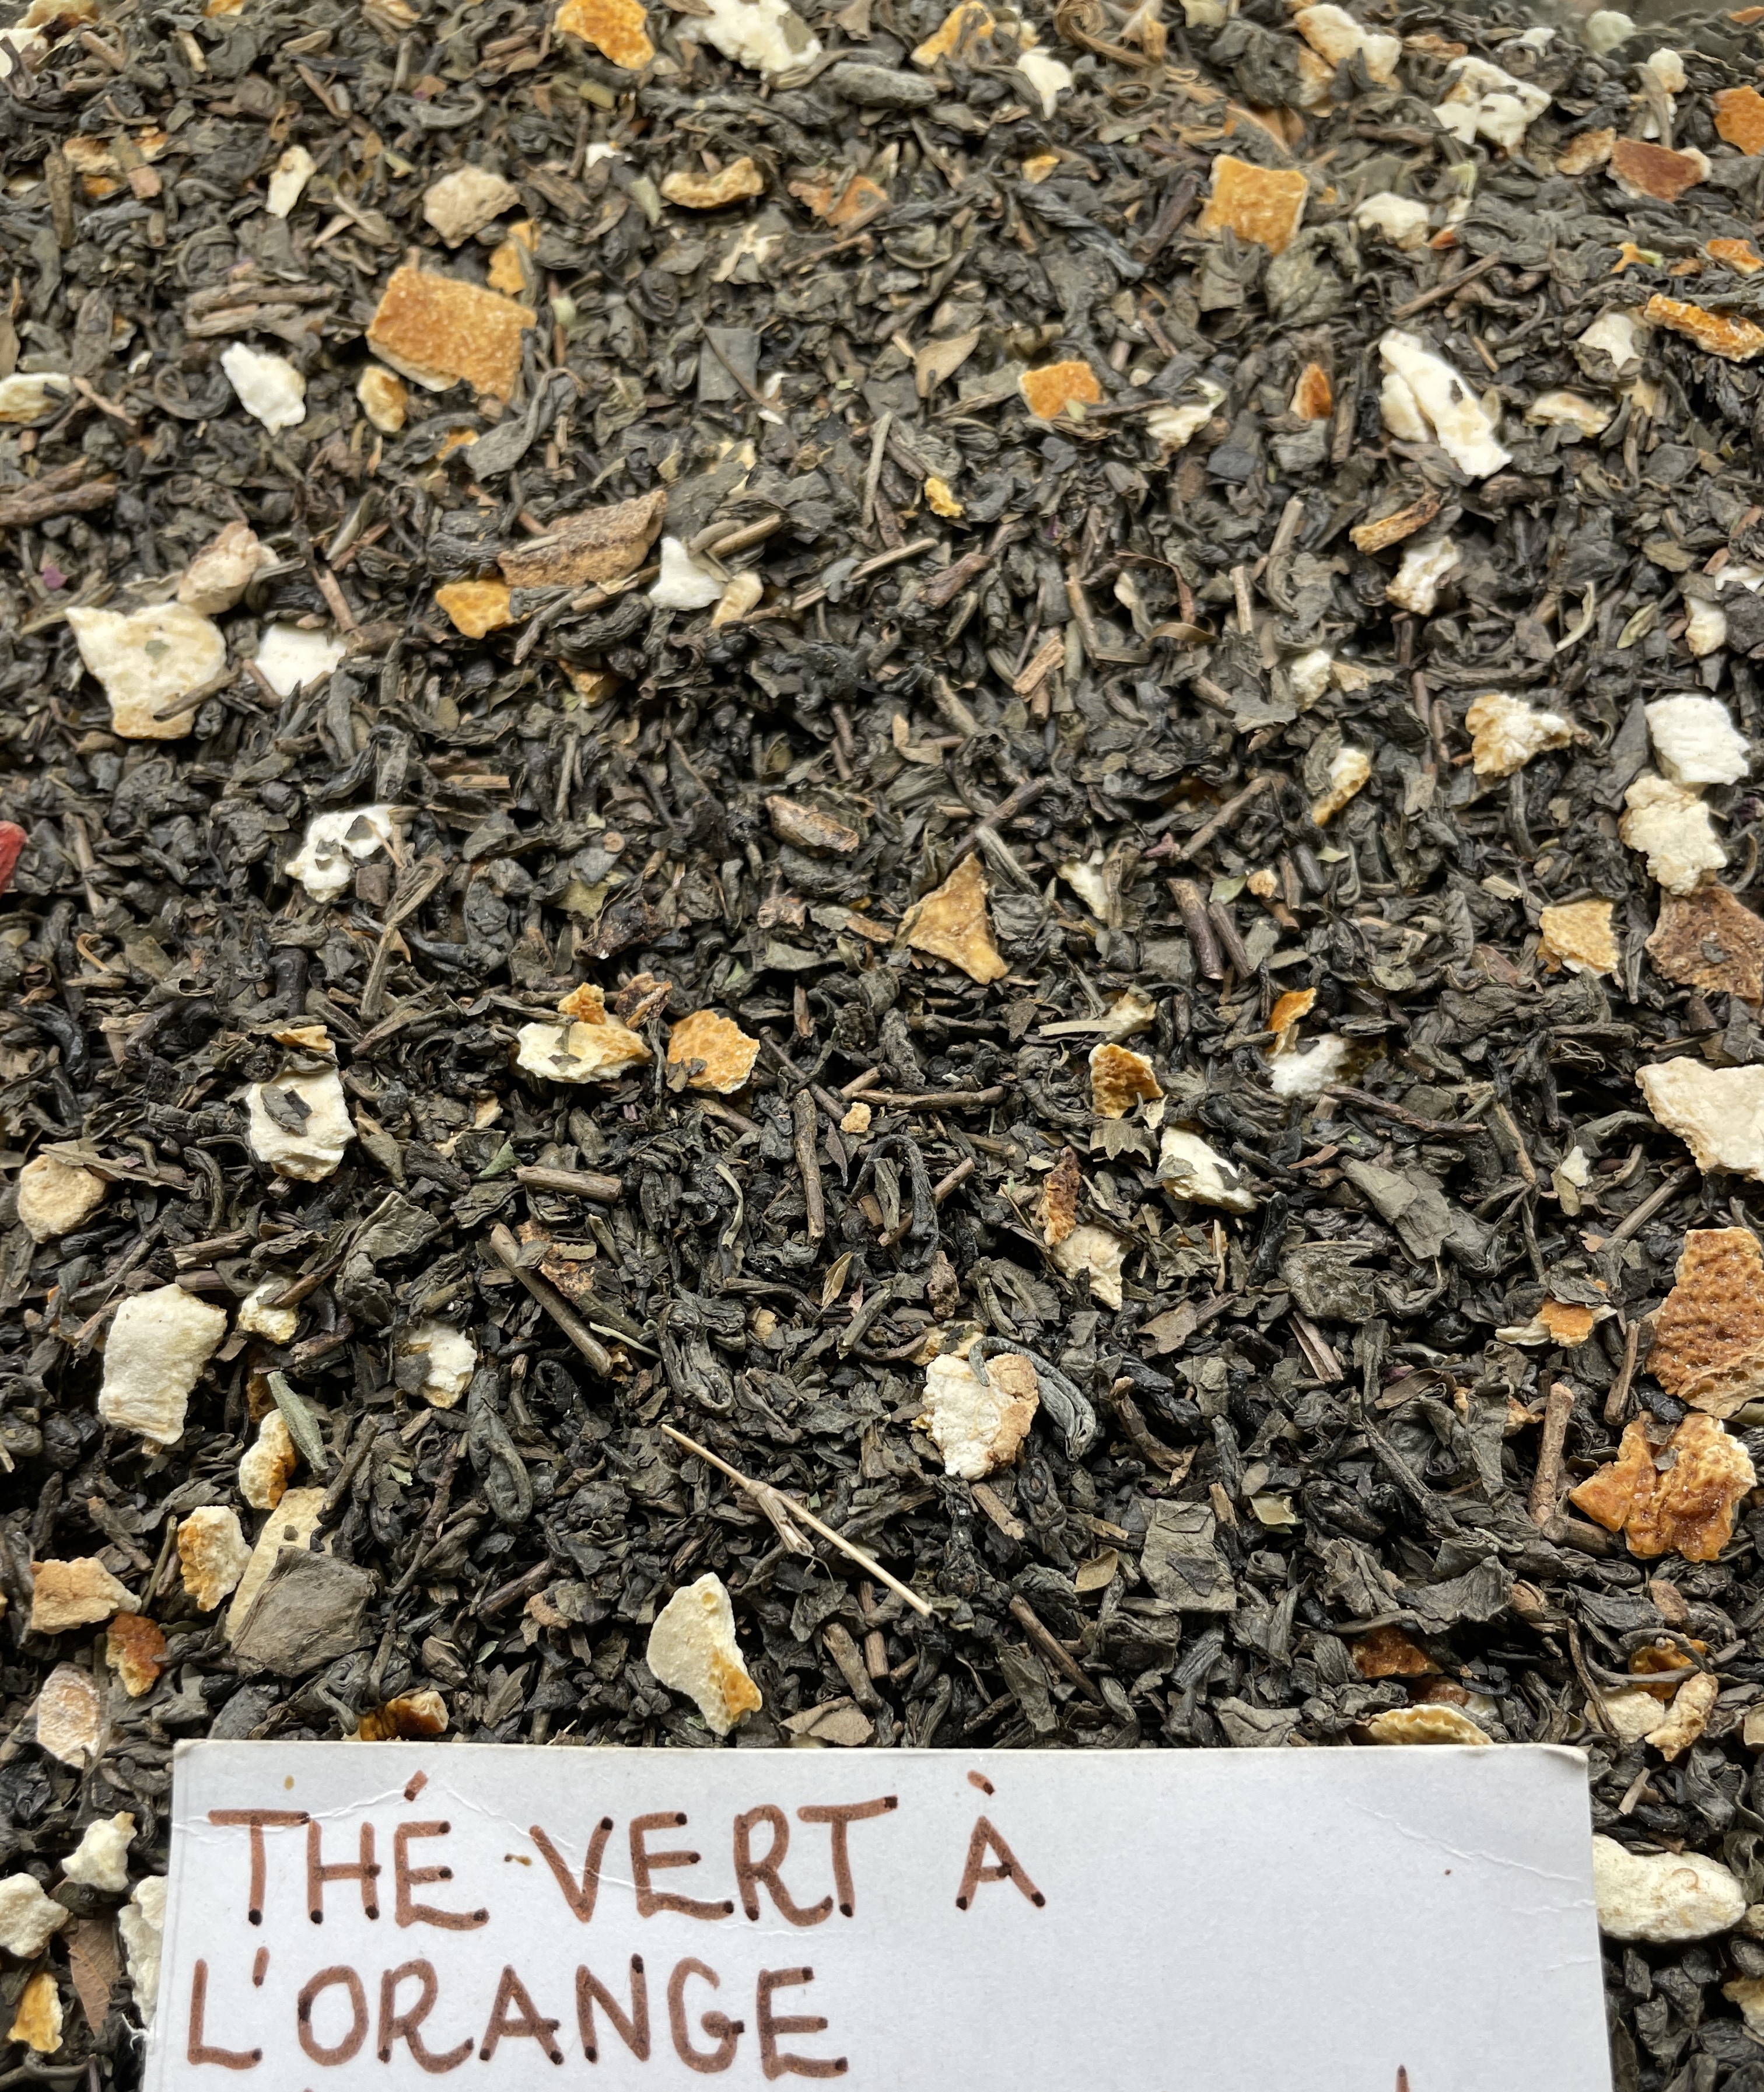 THÉ VERT À
L'ORANGE